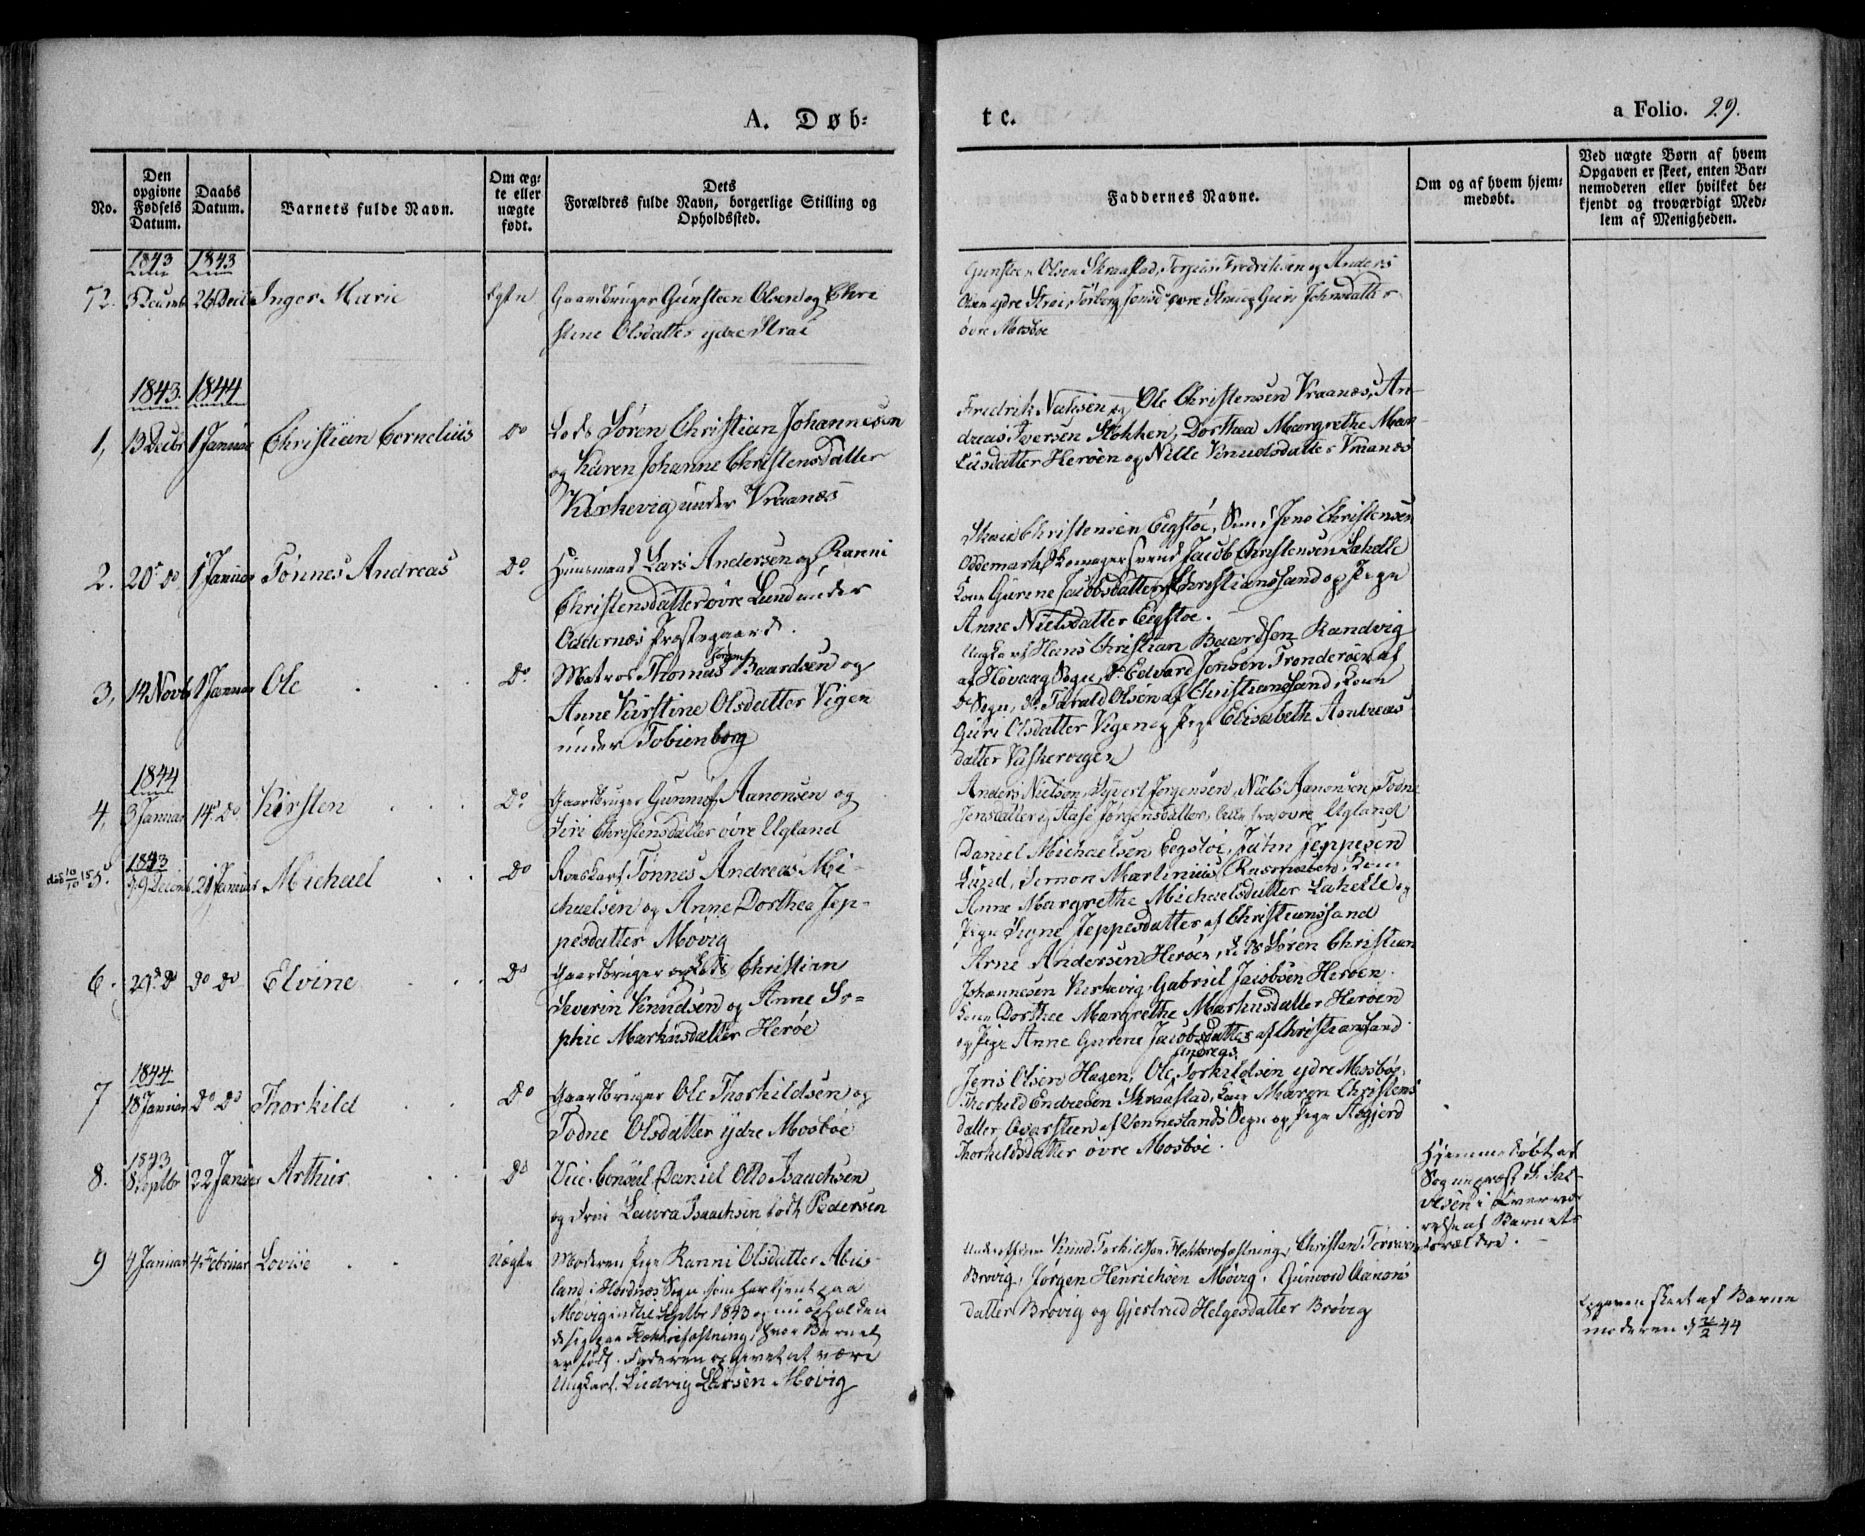 A. Døb-
te.
a Folio. 29.
No.
Den opgivne Fødsels Datum.
Daabs Datum.
Barnets fulde Navn.
Om æg-
te eller
uægte
født.
Dets
Forældres fulde Navn, borgerlige Stilling og
Opholdssted.
Faddernes Navne.
Om og af hvem hjem-
medøbt.
Ved uægte Børn af hvem
Opgaven er skeet, enten Bar-
nemoderen eller hvilket be-
kjendt og troværdigt Med-
lem af Menigheden.
1843 1843
72. Inger Marie
Ægte
Gaardbruger Gunsteen Olsen og Chri
stine Olsdatter ydre Strai
Gunsteen Olsen Skraastad, Terjus Fredriksen og Anders
Olsen ydre Strai, øvre Strai og Guri Johnsdatter
øvre Mosbøe
1843. 1844
1, 13 Decbr 1 Januar Christian Cornelius Do
Lods Søren Christian Johannesen
og Karen Johanne Christensdatter
Kirkevig under Vraanæs
Fredrik og Ole Christensen Vraanæs, An
dreas Iversen Stokken, Dorthea Margrethe Mar
kusdatter Herøen og Nille Knudsdatter Vraanæs
2. 20de do 1 Januar Tønnes Andreas Do
Huusmand Lars Andersen og Ranni
Christensdatter øvre Lund under
Oddernæs Præstegaard.
Christensen Eegstøe, Jens Christensen
Oddemark, svend Jacob Christensen Lahelle
Kone Gurine Jacobsdatter Christianssand og Pige
Anne Nielsdatter Eegstøe.
3, 14 Novb 1 Januar Ole Do
Matros Thomas Jørgen Baardsen og
Anne Kirstine Olsdatter Vigen
under Tobienborg
Ungkarl Hans Christian Baardsen Randvig
af Høvaag Sogn, Do Edvard Jensen Trønderøen af
Do Sogn, Do Tarald Olsen af Christianssand, Kone
Guri Olsdatter Vigen og Pige Elisabeth Andreas
datter Vaskevigen
1844
4, 3 Januar 14de Do Kirsten Do
Gaardbruger Gunnuf Aanonsen og
Siri Christensdatter øvre Ugland
Anders Nielsen, Syvert Jørgensen, Niels Aanonsen, Todne
Jensdatter og Aase Jørgensdatter, alle fra øvre Ugland
1843
5. 21 Januar Michael Do
Tønnes Andreas Mi-
chaelsen og Anne Dorthea Jep-
pesdatter Møvig
Daniel Michaelsen Eegstøe, Jahn Jeppesen
Lund, Simon Martinius Rasmussen, Kone
Anne Margrethe Michaelsdatter Lahelle og
Pige Signe Jeppesdatter af Christianssand
6. 29de Do Do Do Elvine Do
Gaardbruger og Lods Christian
Severin Knudsen og Anne So-
phie Markusdatter Herøe
Arne Andersen Herøen, Lods Søren Christian
Johannesen Kirkevig, Gabriel Jacobsen Herøen.
Kone Dorthee Margrethe Markusdatter Herøen
og Pige Anne Gurine Jacobsdatter af Christianssand.
1844
7 18 Januar Do Do Thorkild Do
Gaardbruger Ole Thorkildsen og
Todne Olsdatter ydre Mosbøe
Jens Olsen Hagen, Ole Andreas Torkildsen ydre Mosbøe,
Thorkild Endresen Skraastad, Kone Maren Christens
datter Qvarsteen af Vennesland Sogn og Pige Aasgierd
Thorkildsdatter øvre Mosbøe.
1843
8. 8 Septbr 22 Januar Arthur Do
Vice Consul Daniel Otto Isaachsen
og Frue Laura Isaachsen født Pedersen
Hjemmedøbt af
Sogneprest
i Overvæ
relse af Barnets
Forældre.
9 4 Januar 4 Februar Lovise Uægte
Moderen Pige Ranni Olsdatter Abus-
land i Sogn som har tjent paa
Møvig indtil Septbr 1843 og nu opholden
de sig paa Flekkerøfæstning, hvor Barnet
er født. Faderen opgivet at være
Ungkarl Ludvig Larsen Møvig
Knud Torkildsen Flekkerøfæstning, Christen
Brøvig, Jørgen Henrichsen Møvig, Gunvord Aanons
datter Brøvig og Gjertrud Helgesdatter Brøvig
Opgaven skeet af Barne
moderen 44